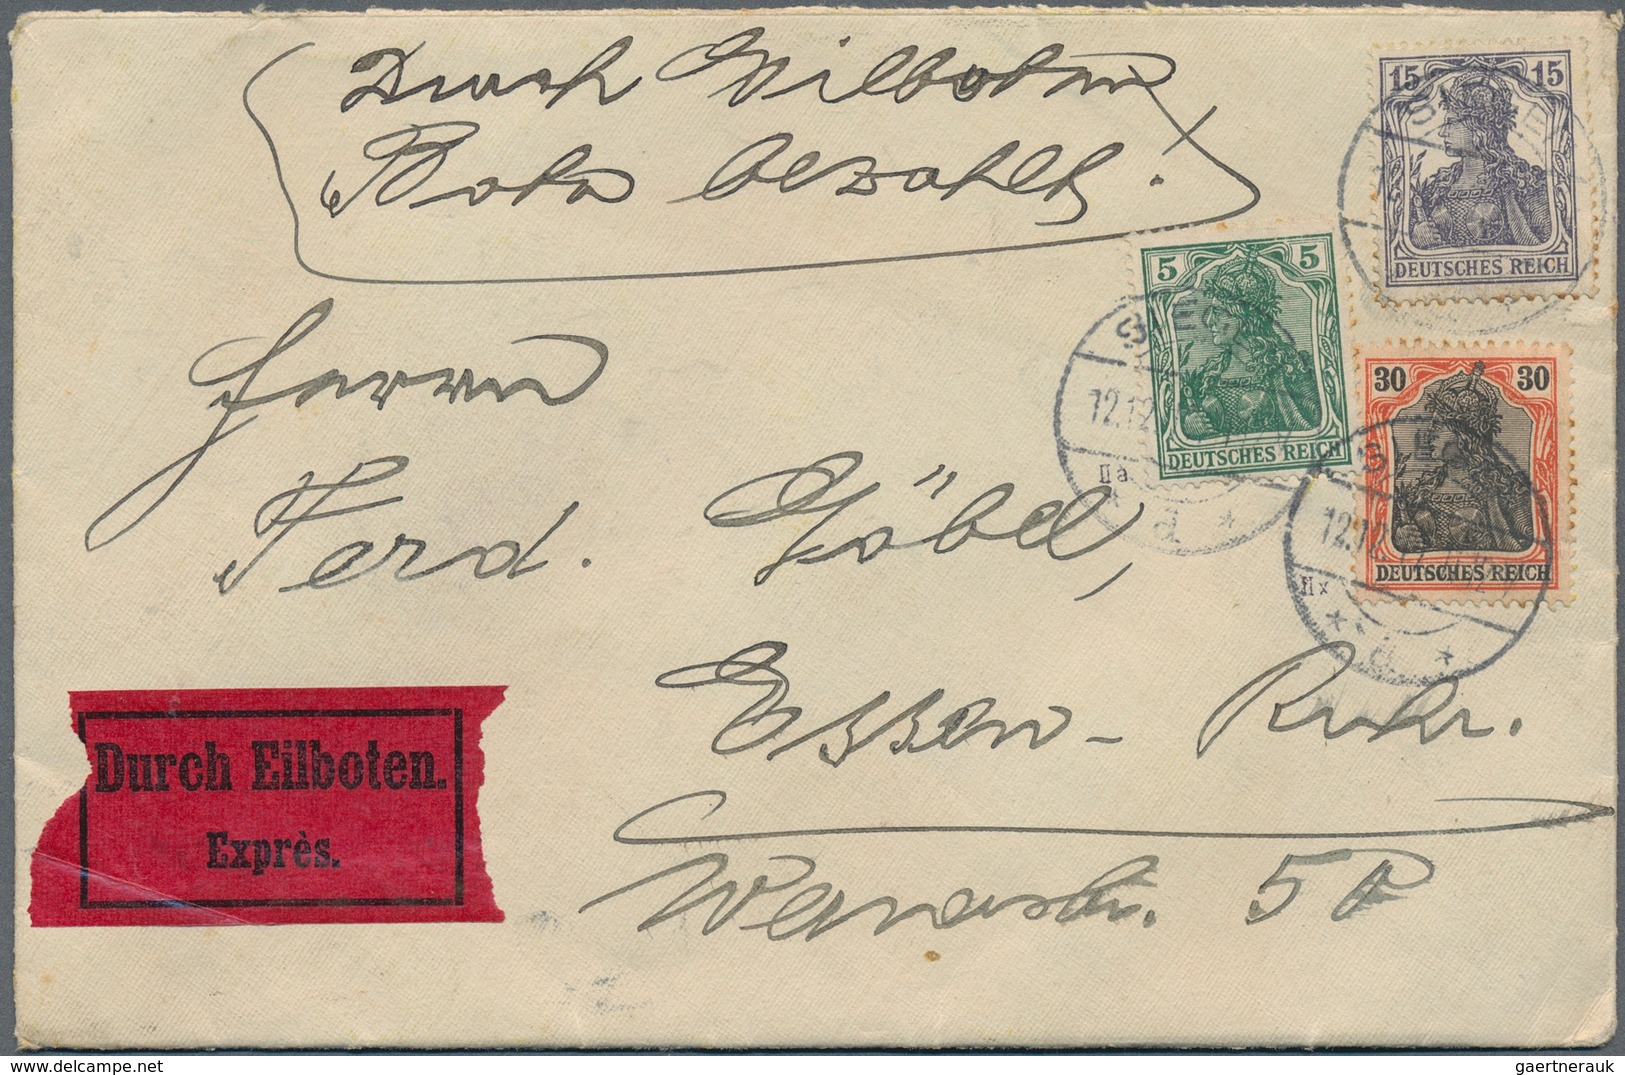 Durch Eilboten
Bote bezahlt!
15 15
DEUTSCHES REICH
5 5
DEUTSCHES REICH
30 30
DEUTSCHES REICH
12.12
IIa
* a *
12.12
II
* a *
Herrn
Ferd. Göbel,
Essen - Ruhr.
5
Durch Eilboten.
Exprès.
gaertnerauk